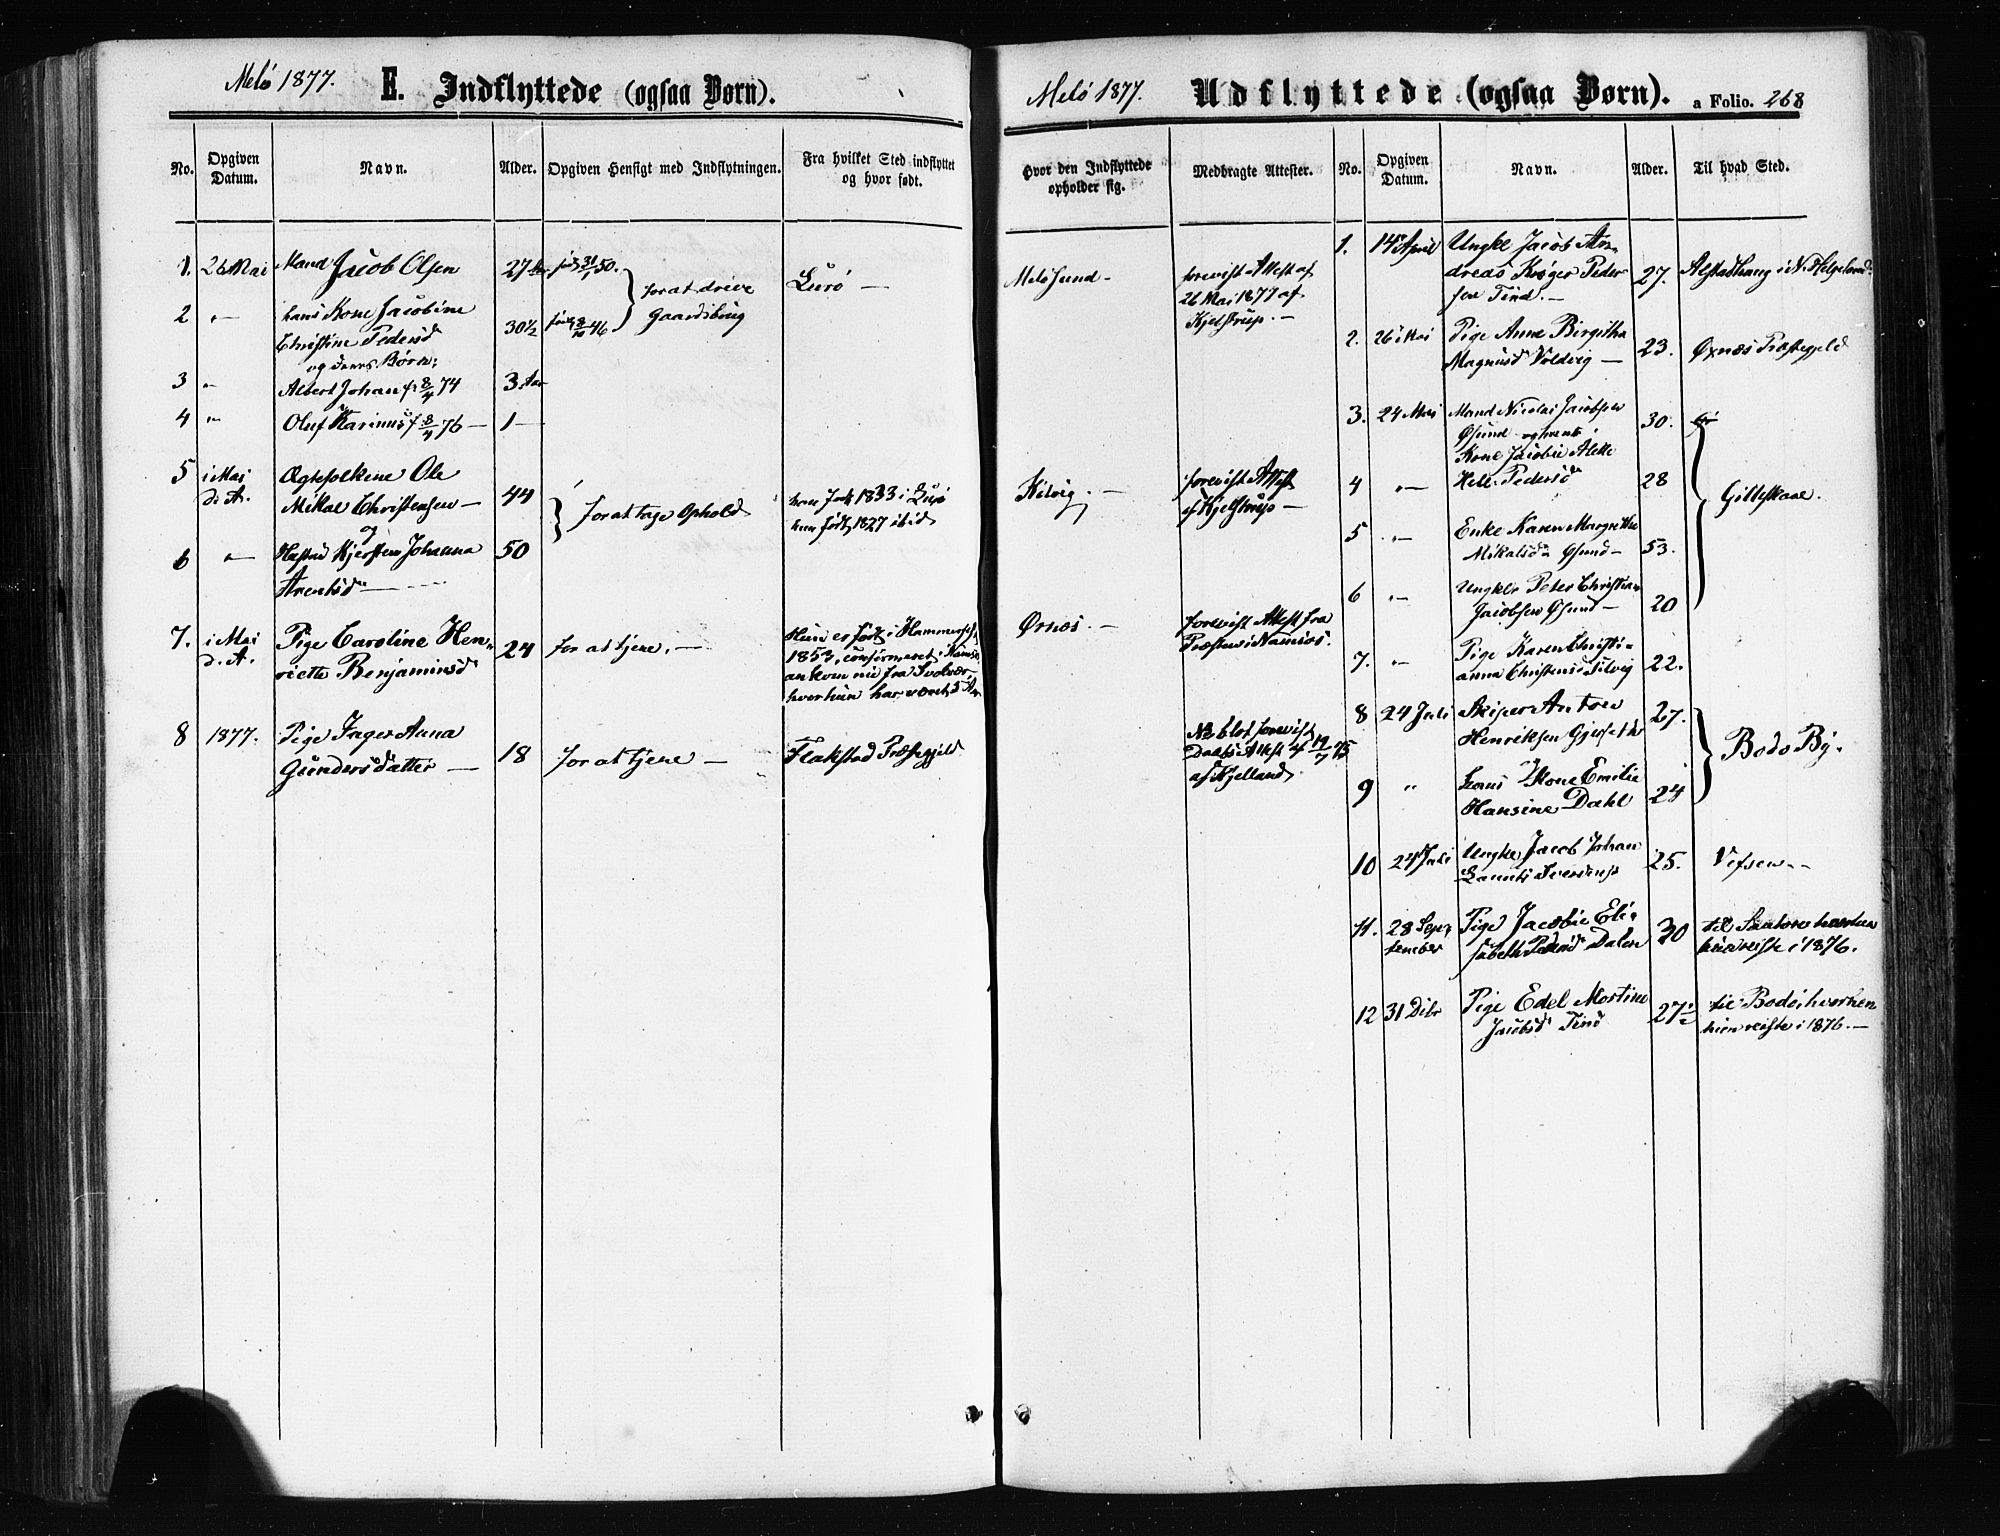 Melø 1877.
E. Indflyttede (ogsaa Børn).
No. Opgiven Datum. Navn. Alder. Opgiven Hensigt med Indflytningen. Fra hvilket Sted indflyttet og hvor født.
1. 26 Mai Mand Jacob Olsen 27 født 31/1 50. for at drive Lurø —
2 " hans Kone Jacobine 30 1/2 født 8/10 46 Gaardsbrug
Christine Pedersd
og deres Børn:
3 " Albert Johan f. 8/4 74 3 Aar
4 " Oluf Karinus f 8/4 76 — 1 —
5 i Mai Ægtefolkene Ole
d: A. Mikal Christensen — 44 for at tage Ophold han født 1833 i Lurø
og hun født 1827 ibid
6 " Hustru Kjersten Johanna 50
Arentsd
7. i Mai Pige Caroline Hen- 24 for at tjene. — Hun er født i Hammerfest
d. A. riette Benjaminsd 1853, confirmeret i Namsos
ankom nu fra Svolvær
hvor hun har været 3 Aar
8 1877. Pige Inger Anna
Gundersdatter — 18 for at tjene — Flakstad Præstegjeld
Melø 1877.
Udflyttede (ogsaa Børn).
a Folio. 268
Hvor den Indflyttede opholder sig. Medbragte Attester. No. Opgiven Datum. Navn. Alder. Til hvad Sted.
Meløsund — forevist Attest af
26 Mai 1877 af
Kjelstrup. —
Kilvig. — forevist Attest
af Kjelstrup —
Ørnæs. — forevist Attest fra
Præsten i Namsos.
NB blot forevist
Daabs Attest af 19/7 75
af Kjelland.
1. 14 April Ungkl Jacob An-
dreas Krøger Peder
sen Tind. — 27. Alstadhaug i N. Helgeland
2. 26 Mai Pige Anne Birgitha
Magnusd Voldvig — 23. Øxnæs Præstegjeld
3. 24 Mai Mand Nicolai Jacobsen 30.
Øsund og hans
Kone Jacobine Alette
4 " Pedersd 28 Gilleskaal.
5 " Enke Karen Margrethe
Mikalsd Øsund — 53.
6 " Ungkl. Peter Christian
Jacobsen Øsund — 20
7. " Pige Karen Christi-
anna Christensd Kilvig 22.
8 24 Juli Skiper Anton 27.
Henriksen Bodø By.
9 " hans Kone Emilie
Hansine Dahl 24
10 24 Juli Ungkl Jacob Johan 25. Vefsen —
11. 28 Sep- Pige Jacobine Eli- 30
tember sabeth Pedersd Dalen hun reiste i 1876.
12 31 Dcbr Pige Edel Martine 27 1/2 til Bodø hvorhen
Jacobsd Tind hun reiste i 1876. —